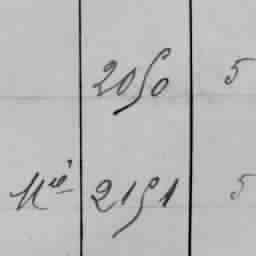 2050 5
Mié 2151 5